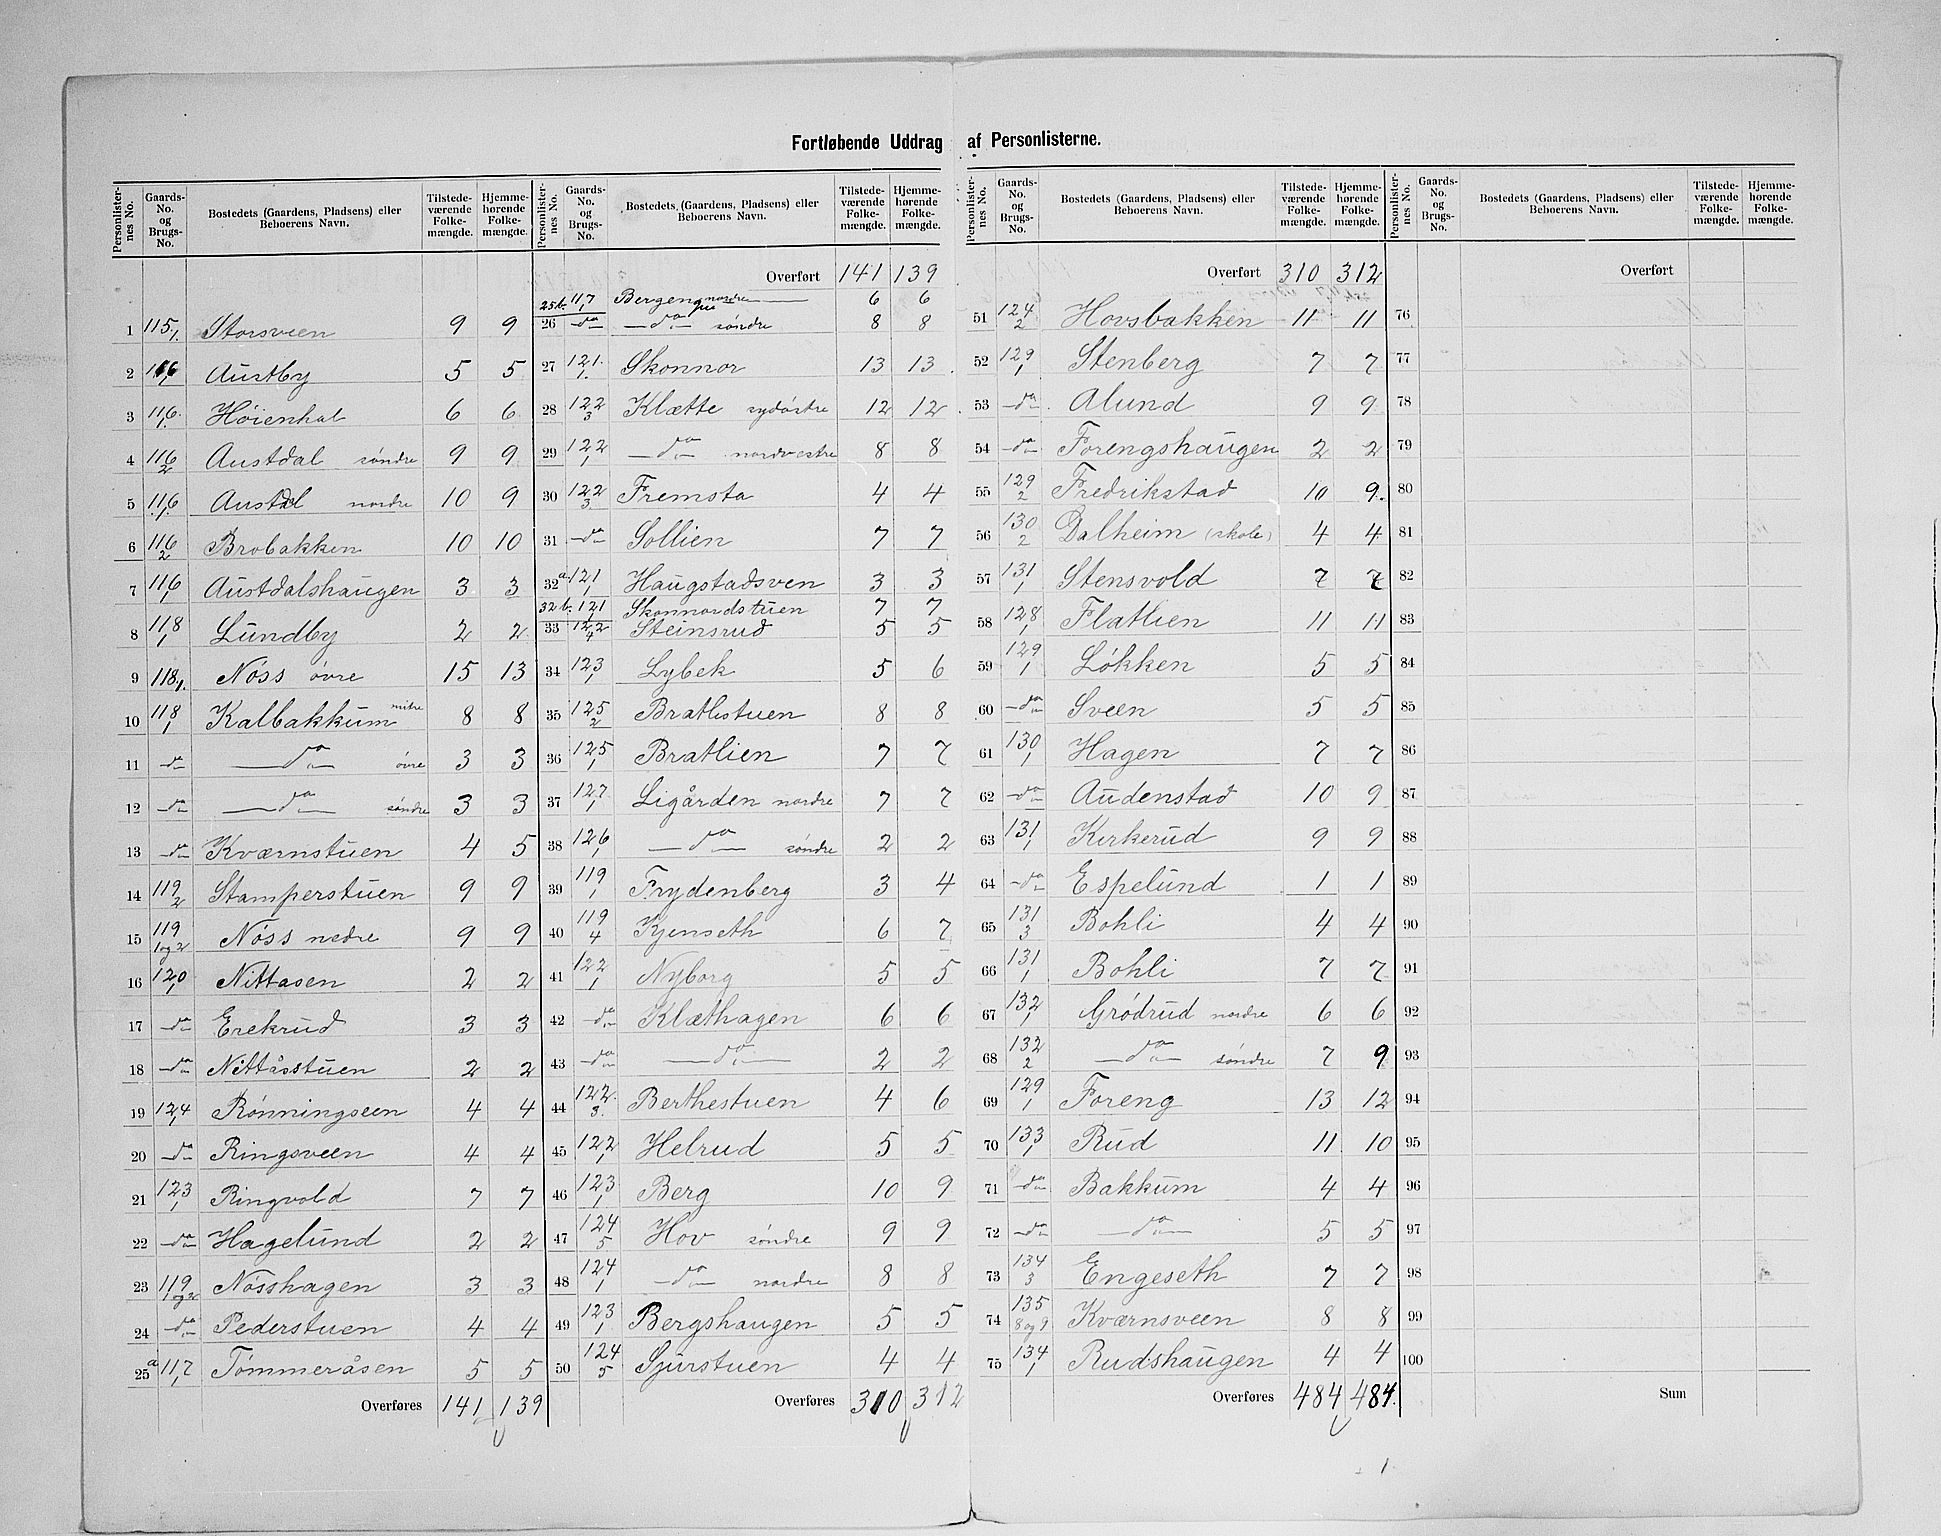 Fortløbende Uddrag af Personlisterne.
Personlister-nes No. | Gaards-No. og Brugs-No. | Bostedets (Gaardens, Pladsens) eller Beboerens Navn. | Tilstede-værende Folke-mængde. | Hjemme-hørende Folke-mængde.
1 115/1. Storsveen 9 9
2 116/1 Austby 5 5
3 116/1. Höienhal 6 6
4 116/2 Austdal söndre 9 9
5 116/1. Austdal nordre 10 9
6 116/2 Brobakken 10 10
7 116/1 Austdalshaugen 3 3
8 118/1 Lundby 2 2
9 118/1. Nöss övre 15 13
10 118/1 Kalbakkum mitre 8 8
11 do do övre 3 3
12 do do söndre 3 3
13 do Kværnstuen 4 5
14 119/2 Stamperstuen 9 9
15 119/1 og 2 Nöss nedre 9 9
16 120/1 Nittasen 2 2
17 do Erekrud 3 3
18 do Nittåsstuen 2 2
19 124/1 Rönningseen 4 4
20 do Ringsveen 4 4
21 123/1 Ringvold 7 7
22 do Hagelund 2 2
23 119/1 og 2 Nösshagen 3 3
24 do Pederstuen 4 4
25a 117/1 Tömmeråsen 5 5
Overføres 141 139
Personlister-nes No. | Gaards-No. og Brugs-No. | Bostedets (Gaardens, Pladsens) eller Beboerens Navn. | Tilstede-værende Folke-mængde. | Hjemme-hørende Folke-mængde.
Overført 141 139
25b. 117/1 nordre 6 6
26 do do söndre 8 8
27 121./1. Skonnor 13 13
28 122/3 Klætte sydöstre 12 12
29 122/1 do nordvestre 8 8
30 122/3 Fremsta 4 4
31 do Sollien 7 7
32a. 121/1 Haugstadsven 3 3
32b. 121/1 Skonnordstuen 7 7
33 122/4 Steinsrud 5 5
34 123/1 Lybek 5 6
35 125/2 Bratlistuen 8 8
36 125/1 Bratlien 7 7
37 127/1 Ligården nordre 7 7
38 126/1 do söndre 2 2
39 119/1 Frydenberg 3 4
40 119/4 Kjenseth 6 7
41 122/1 Nyborg 5 5
42 do Klæthagen 6 6
43 do do 2 2
44 122/3. Berthestuen 4 6
45 122/1 Helrud 5 5
46 123/1 Berg 10 9
47 124/5 Hov söndre 9 9
48 124/1 do nordre 8 8
49 123/1 Bergshaugen 5 5
50 124/5 Sjurstuen 4 4
Overføres 310 312
Personlister-nes No. | Gaards-No. og Brugs-No. | Bostedets (Gaardens, Pladsens) eller Beboerens Navn. | Tilstede-værende Folke-mængde. | Hjemme-hørende Folke-mængde.
Overført 310 312
51 124/2 Hovsbakken 11 11
52 129/1 Stenberg 7 7
53 do Alund 9 9
54 do Forengshaugen 2 2
55 129/2 Fredrikstad 10 9.
56 130/2 Dalheim (skole) 4 4
57 131/1 Stensvold 7 7
58 128/1 Flatlien 11 11
59 129/1 Lökken 5 5
60 do Sveen 5 5
61 130/1 Hagen 7 7
62 do Audenstad 10 9
63 131/1 Kirkerud 9 9
64 do Espelund 1 1
65 131/3 Bohli 4 4
66 131/1 Bohli 7 7
67 132/1 Grödrud nordre 6 6
68 132/2 do söndre 7 9
69 129/1 Foreng 13 12
70 133/1 Rud 11 10
71 do Bakkum 4 4
72 do do 5 5
73 134/3 Engeseth 7 7
74 135/8 og 9 Kværnsveen 8 8
75 134/1 Rudshaugen 4 4
Overføres 484 484.
Personlister-nes No. | Gaards-No. og Brugs-No. | Bostedets (Gaardens, Pladsens) eller Beboerens Navn. | Tilstede-værende Folke-mængde. | Hjemme-hørende Folke-mængde.
Overført
76
77
78
79
80
81
82
83
84
85
86
87
88
89
90
91
92
93
94
95
96
97
98
99
100
Sum